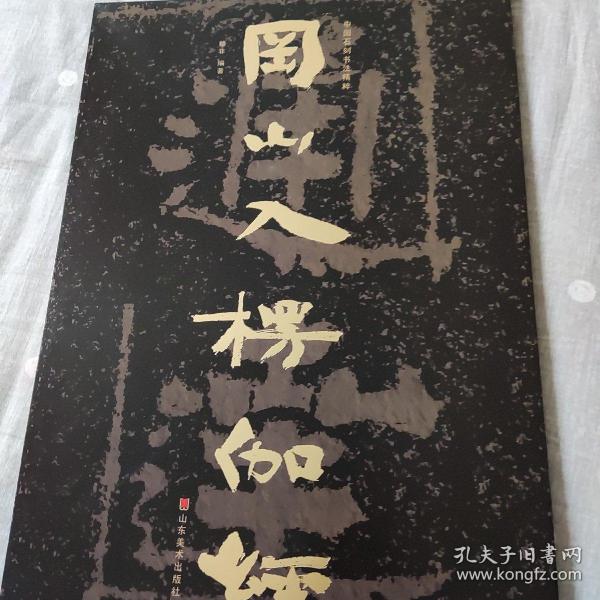 中国石刻书法精粹
冈山入楞伽经
赖非 编著
山东美术出版社
孔夫子旧书网
www.kongfz.com